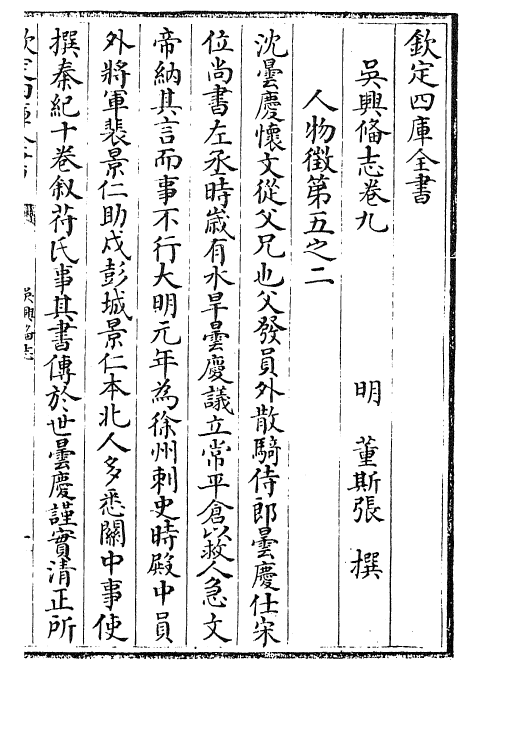 欽定四庫全書
吳興備志卷九
明 董斯張 撰
人物徵第五之二
沈曇慶懷文從父兄也父發員外散騎侍郎曇慶仕宋
位尚書左丞時歲有水旱曇慶議立常平倉以救人急文
帝納其言而事不行大明元年為徐州刺史時殿中員
外將軍裴景仁助戍彭城景仁本北人多悉關中事使
撰秦紀十卷叙苻氏事其書傳於世曇慶謹實清正所
吳興備志